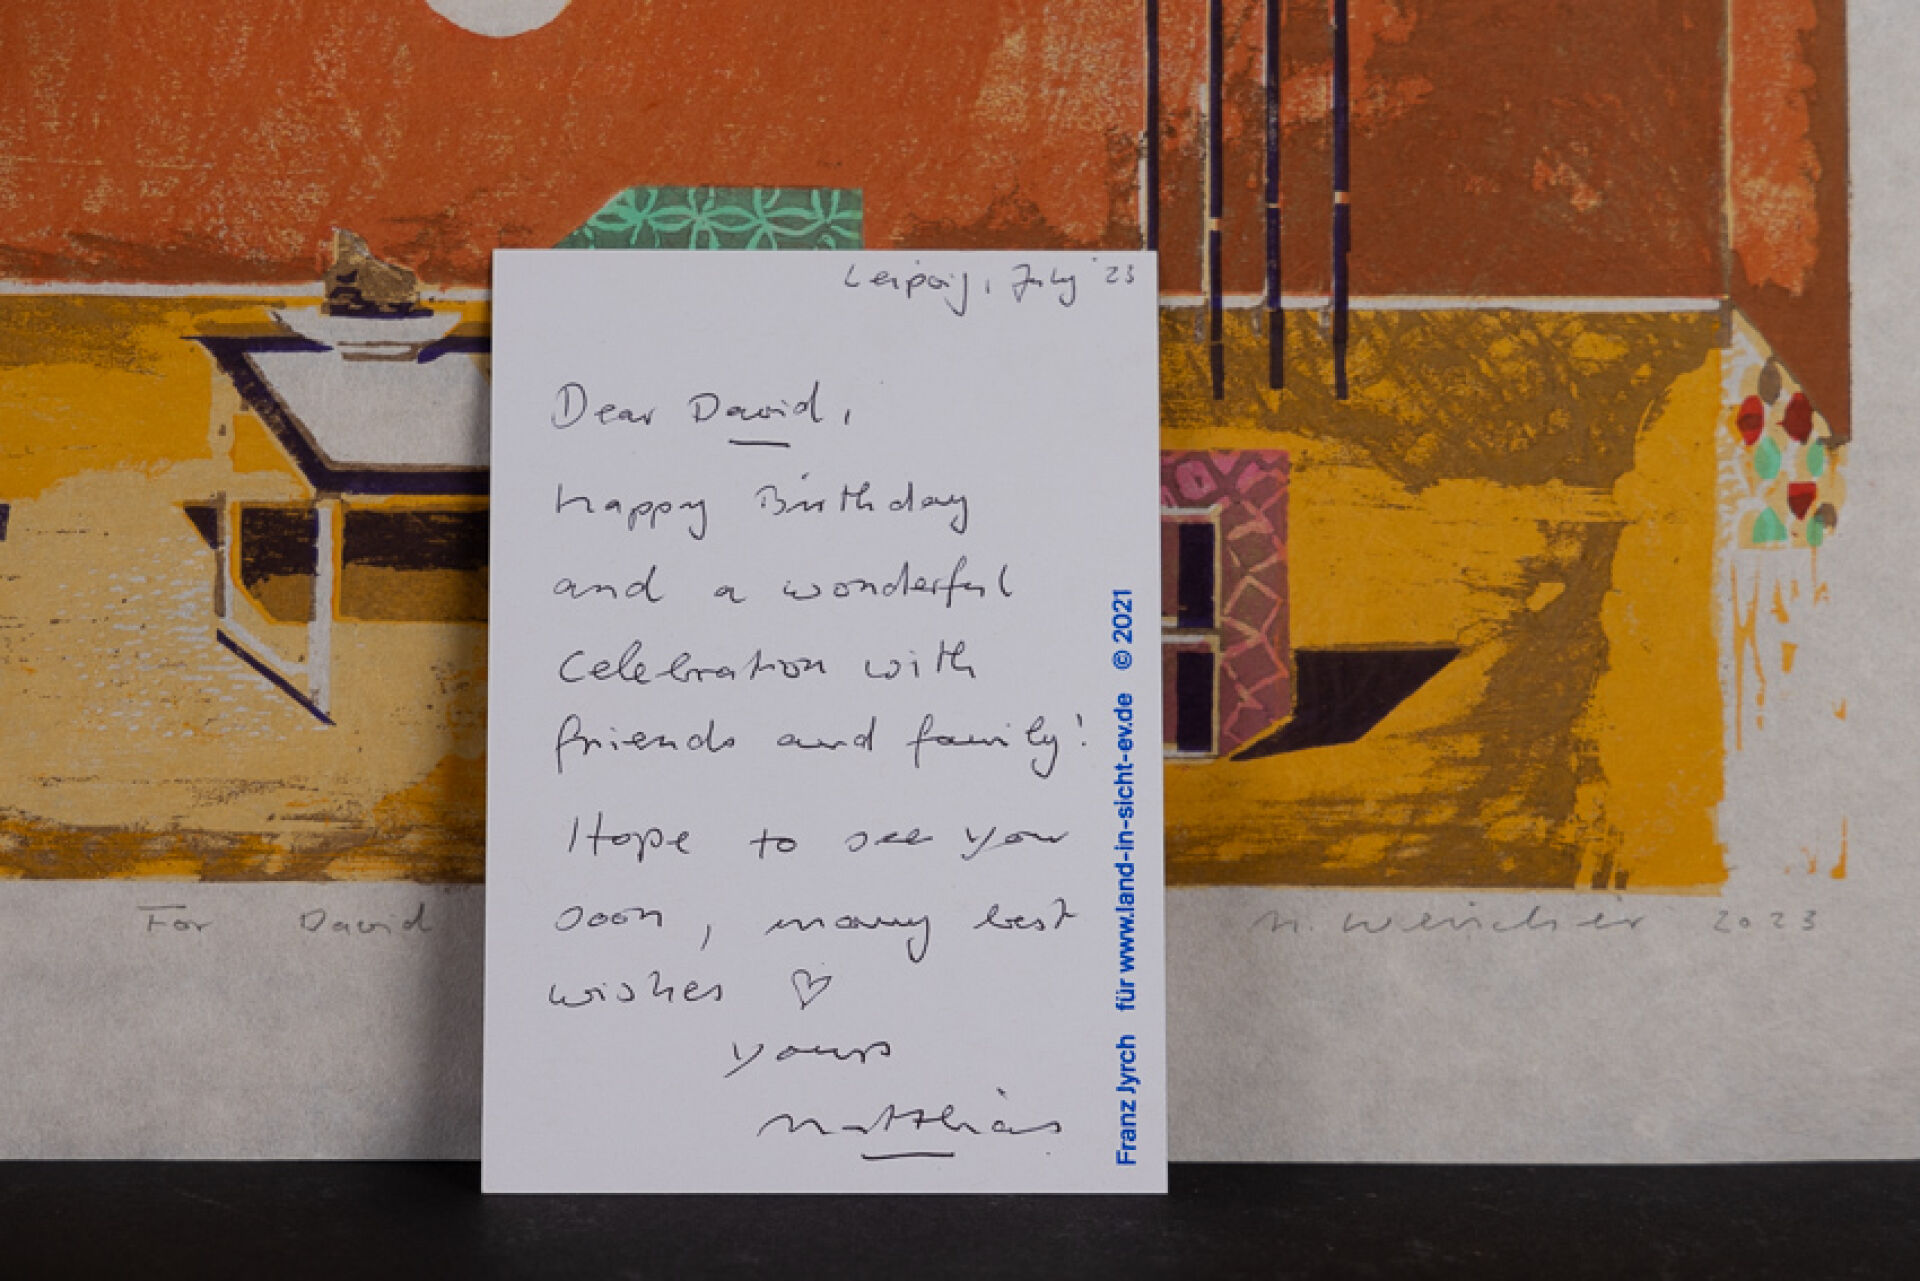 Leipzig, July '23
Dear David,
happy Birthday
and a wonderful
celebration with
friends and family!
Hope to see you
soon, many best
wishes ♡
yours
Matthias
Franz Jyrch für www.land-in-sicht-ev.de © 2021
For David
M. Weischer 2023